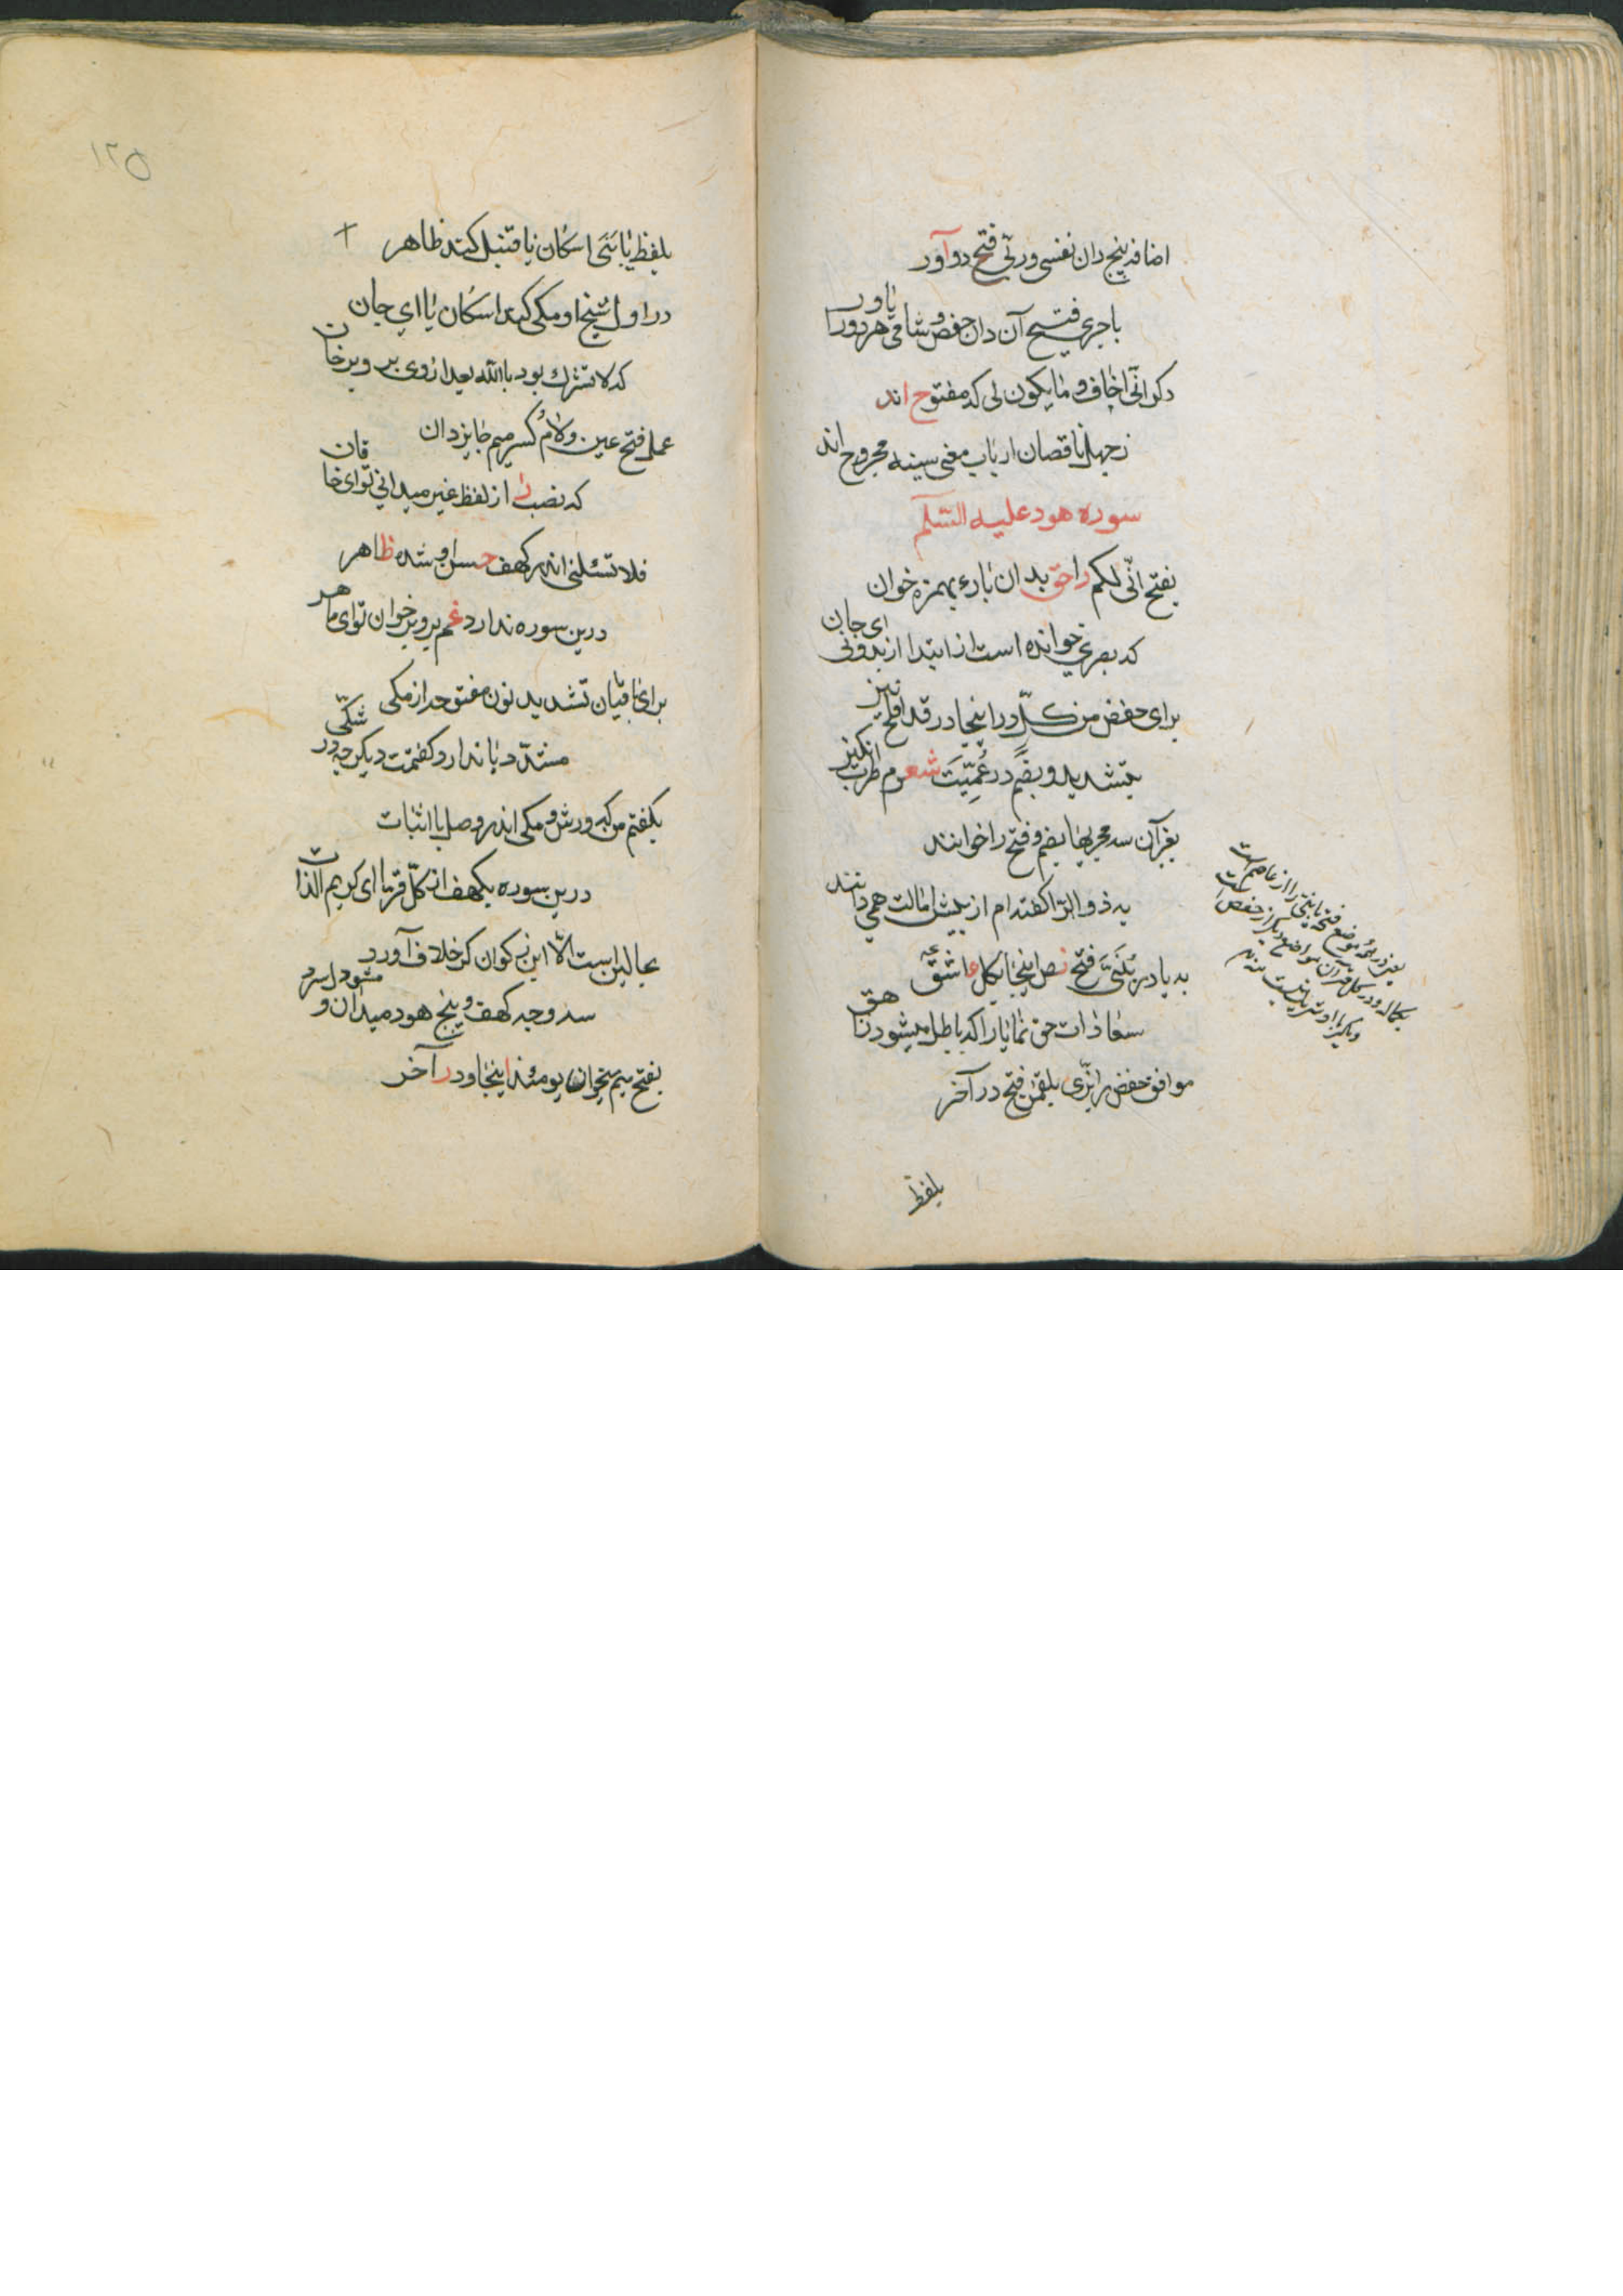 اضافه پنج دان نفسی و ربّی فتح دو آور
باجری فتح آن دان حفص و شامی هر دو را یاور
دکر انّی اخاف و ما یکون لی که مفتوح اند
ز جهل ناقصان ارباب معنی سینه مجروح اند
سوره هود علیه السّلم
بفتح انّی لکم راحق بدان بادء بهمزه خوان
که بصری خوانده است از ابتدا از بد و نی ای جان
برای حفص من کلٍّ در اینجا در قد افلح نیز
بتشدید و بضم در عُمِّیَت شعرم طرب انکیز
بغیر آن سه مجریها بضم و فتح را خوانند
به ذو الرّا کفته ام از پیش امالت همی دانند
به یا در بُنَیَّ فتح نص اینجا بکل عاشق
سعادات حق نما یا را که باطل میشود زاهق
موافق حفص را بزّی بلقمن فتح در آخر
بلفظ
۱۲۵
بلفظ یا بنی اسکان یا قنبل کند ظاهر
در اول شیخ او مکی کند اسکان یا ای جان
که لا تشرک بود بالله بعد از وی بر و بر خوان
عمل فتح عین و لام کسر میم جایز دان
که نصب را از لفظ غیر میدانی تو ای خاقان
فلا تسئلنی اندر کهف حسن او شده ظاهر
درین سوره ندارد غم برو بر خوان تو ای ماهر
برای باقیان تشدید نون مفتوحه از مکی
مشدّد یا ندارد کفتمت دیکر چه در شکّی
بکفتم من که ورش و مکی اندر وصل با اثبات
درین سوره بکهف از کلّ قرّا ای کریم الذات
بحالین است الّا ابن ذکوان کز خلاف آورد
سه وجه کهف و پنج هود میدان و مشو دلسرد
بفتح میم میخوان یومئذ اینجا و در آخر